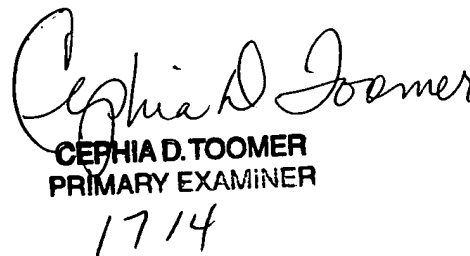 Cephia D Toomer
CEPHIA D. TOOMER
PRIMARY EXAMINER
1714